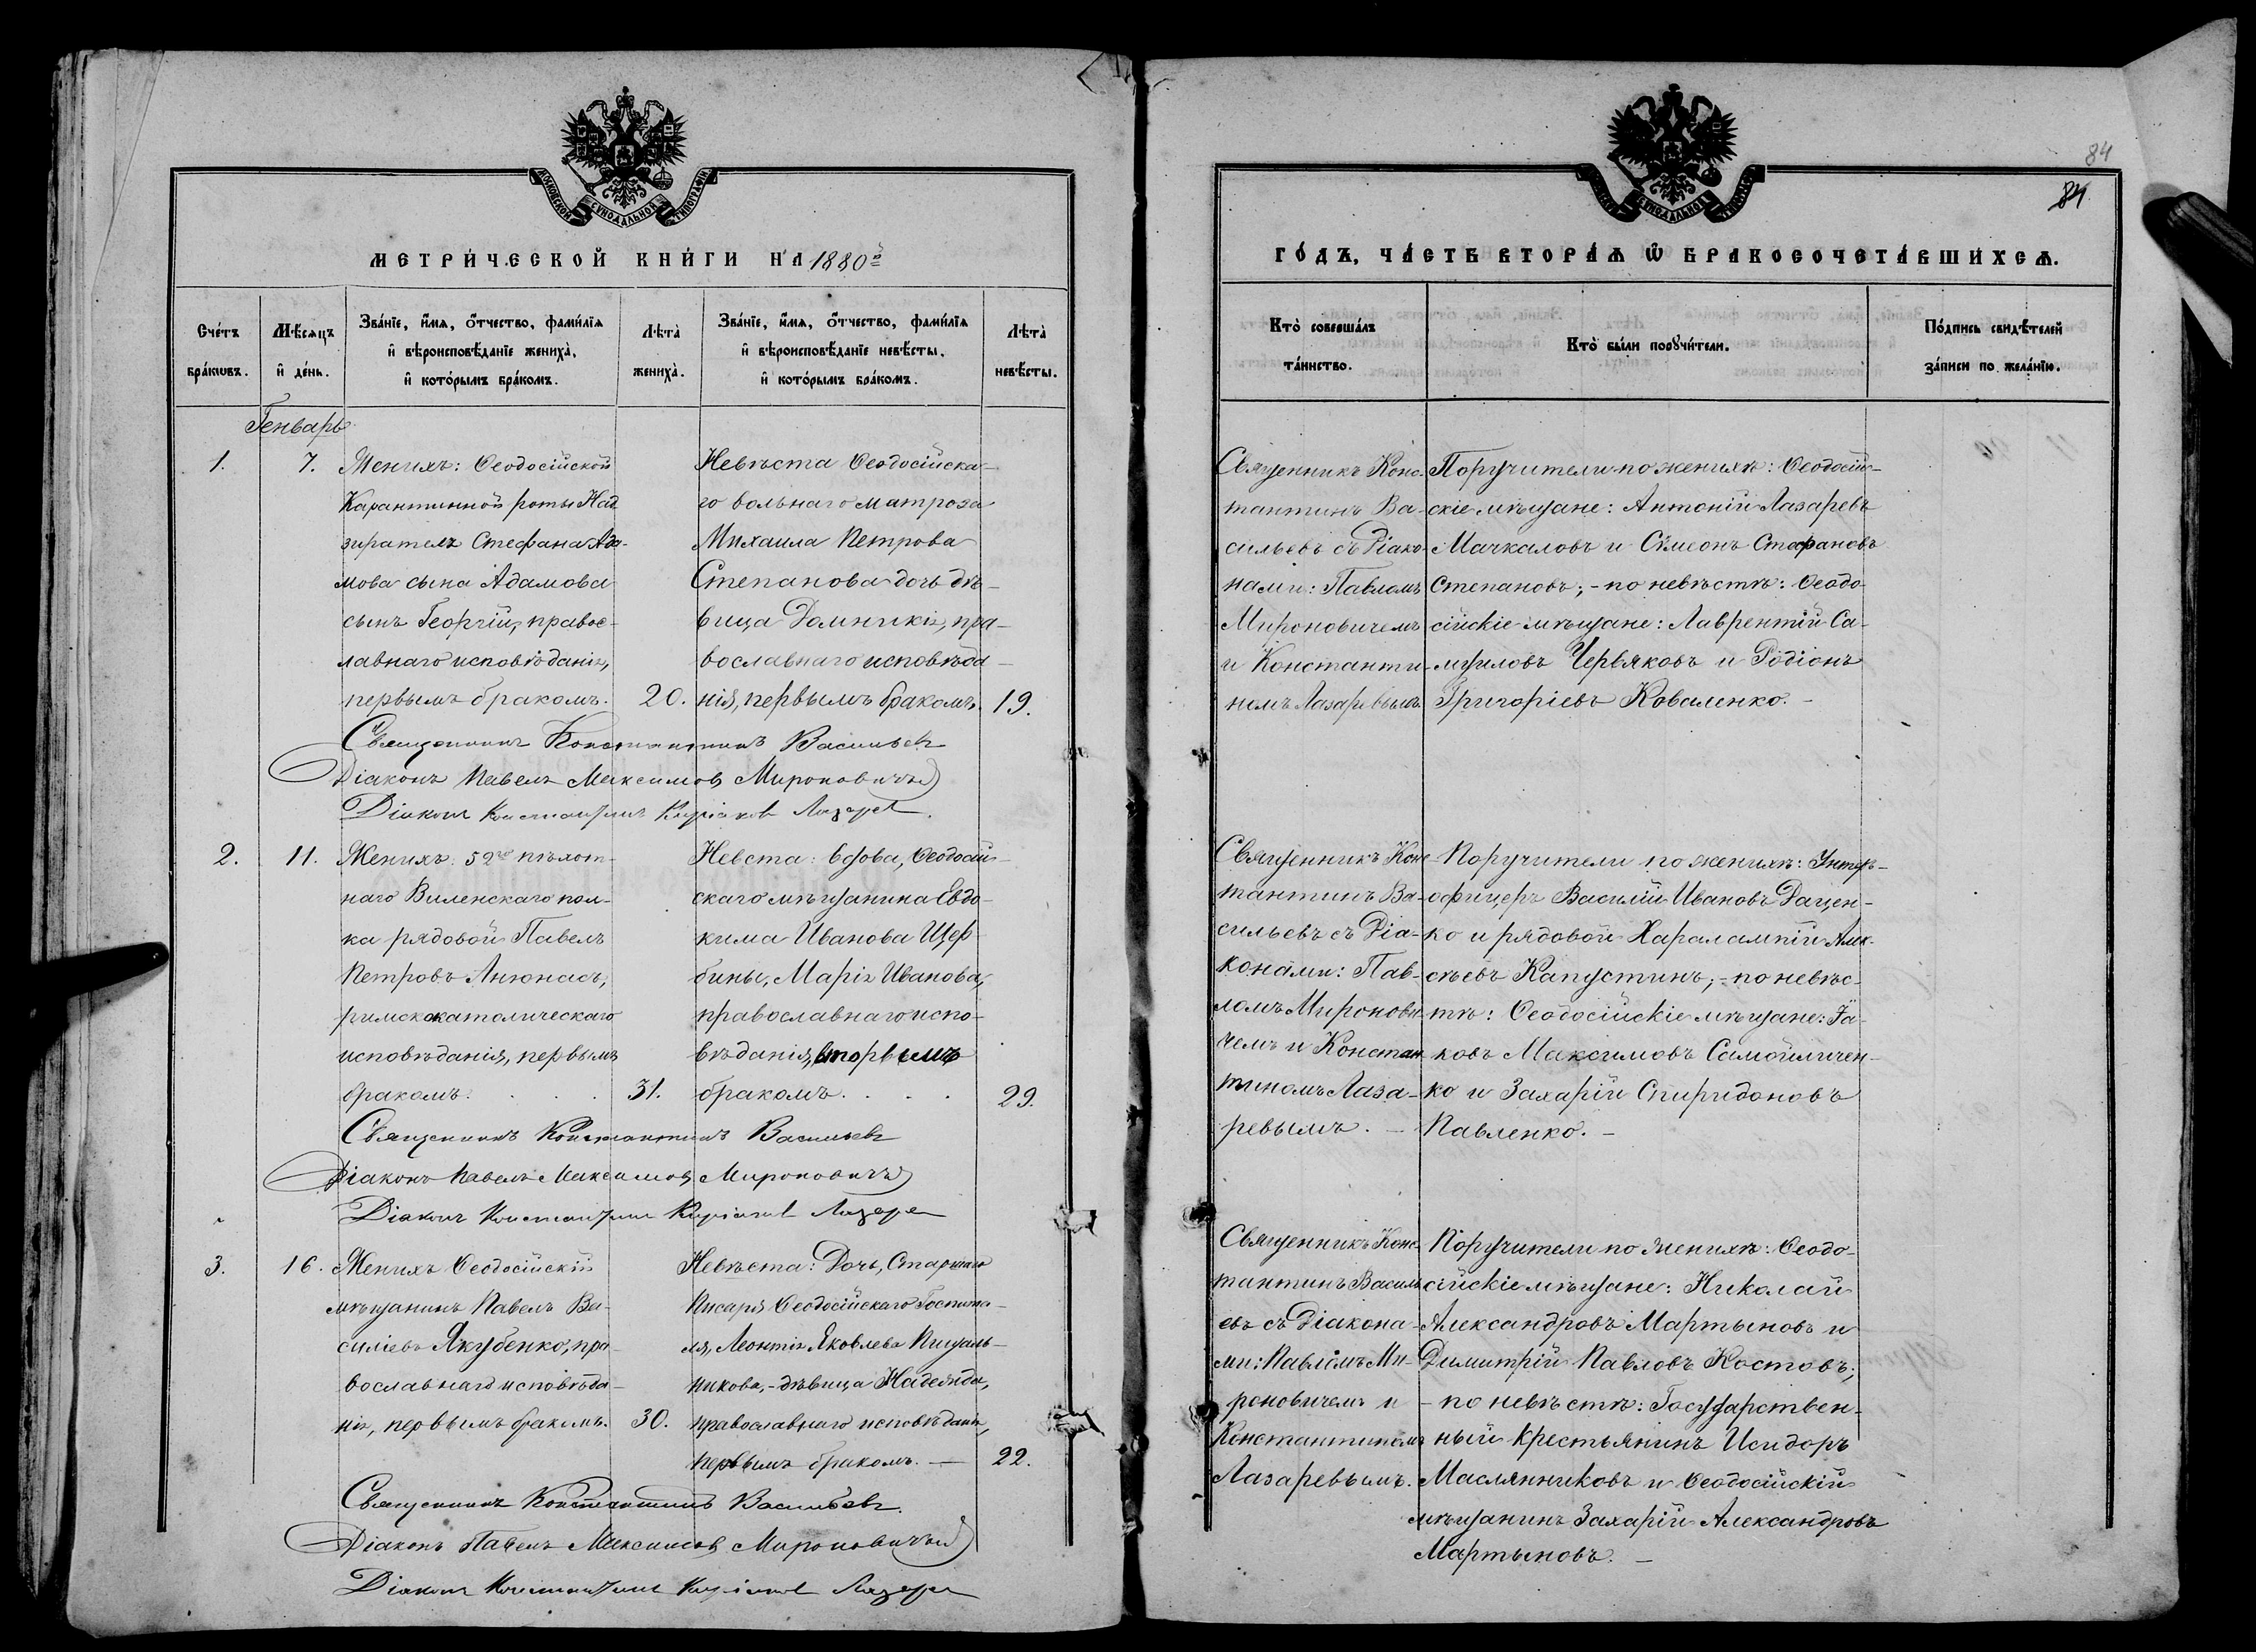 МОСКОВСКОЙ СѴНОДАЛЬНОЙ ТИПОГРАФІИ
МЕТРИЧЕСКОЙ КНИГИ НА 1880й
Счетъ браковъ.
Мѣсяцъ и день.
Званіе, имя, отчество, фамилія
и вѣроисповѣданіе жениха,
и которымъ бракомъ.
Лѣта жениха.
Званіе, имя, отчество, фамилія
и вѣроисповѣданіе невѣсты,
и которымъ бракомъ.
Лѣта невѣсты.
Генварь
1. 7.
Женихъ: Ѳеодосійской
Карантинной роты Над
зирателя Стефана Ада-
мова сына Адамова
сынъ Георгій, правос-
лавнаго исповѣданія,
первымъ бракомъ. 20.
Невѣста Ѳеодосійска-
го вольнаго матроза
Михаила Петрова
Степанова дочь дѣ-
вица Домникія, пра-
вославнаго исповѣда-
нія, первымъ бракомъ. 19.
Священникъ Константинъ Васильевъ
Діаконъ Павелъ Максимовъ Мироновичъ
Діаконъ Константинъ Киріаковъ Лазарев
2. 11.
Женихъ: 52го пѣхот-
наго Виленскаго пол-
ка рядовой Павелъ
Петровъ Анюнасъ,
римскокатолическаго
исповѣданія, первымъ
бракомъ. 31.
Невста: вдова, Ѳеодосій-
скаго мѣщанина Евдо-
кима Иванова Щер-
бины, Марія Иванова,
православнаго испо-
вѣданія, вторымъ
бракомъ. 29.
Священникъ Константинъ Васильевъ
Діаконъ Павелъ Максимовъ Мироновичъ
Діаконъ Константинъ Киріаковъ Лазарев
3. 16.
Женихъ Ѳеодосійскій
мѣщанинъ Павелъ Ва-
силіевъ Якубенко, пра-
вославнаго исповѣда-
нія, первымъ бракомъ. 30.
Невѣста: Дочь, Старшаго
Писаря Ѳеодосійскаго Госпита-
ля, Леонтія Яковлева Пищаль-
никова, - дѣвица Надежда,
православнаго исповѣданія,
первымъ бракомъ. — 22.
Священникъ Константинъ Васильевъ
Діаконъ Павелъ Максимовъ Мироновичъ
Діаконъ Константинъ Киріаковъ Лазарев
84
84
МОСКОВСКОЙ СѴНОДАЛЬНОЙ ТИПОГРАФІИ
ГОДЪ, ЧАСТЬ ВТОРАЯ Ѡ БРАКОСОЧЕТАВШИХСЯ.
Кто совершалъ таинство.
Кто были поручители.
Подпись свидѣтелей
записи по желанію.
Священникъ Конс-
тантинъ Ва-
сильевъ съ Діако-
нами: Павломъ
Мироновичемъ
и Константи-
номъ Лазаревымъ.
Поручители по женихѣ: Ѳеодосій-
скіе мѣщане: Антоній Лазаревъ
Мачкаловъ и Сѵмеонъ Стафановъ
Степановъ; - по невѣстѣ: Ѳеодо-
сійскіе мѣщане: Лаврентій Са-
муиловъ Червяковъ и Родіонъ
Григоріевъ Коваленко. -
Священникъ Конс-
тантинъ Ва-
сильевъ съ Діа-
конами: Пав-
ломъ Миронови-
чемъ и Констан-
тиномъ Лаза-
ревымъ. -
Поручители по женихѣ: Унтеръ-
офицеръ Василій Ивановъ Дацен-
ко и рядовой Харалампій Алек-
сѣевъ Капустинъ; - по невѣс-
тѣ: Ѳеодосійскіе мѣщане: Іа-
ковъ Максимовъ Самойличен-
ко и Захарій Спиридоновъ
Павленко. -
Священникъ Конс-
тантинъ Василь-
евъ съ Діакона-
ми: Павломъ Ми-
роновичемъ и
Константиномъ
Лазаревымъ.
Поручители по женихѣ: Ѳеодо-
сійскіе мѣщане: Николай
Александровъ Мартыновъ и
Димитрій Павловъ Костовъ;
- по невѣстѣ: Государствен-
ный крестьянинъ Исидоръ
Маслянниковъ и Ѳеодосійскій
мѣщанинъ Захарій Александровъ
Мартыновъ. -